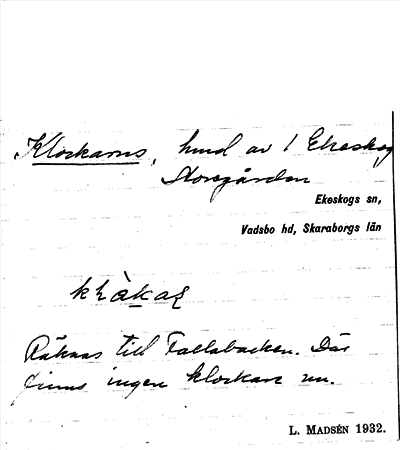 Klockarns, hmd av 1 Ekeskog
Storegården
Ekeskogs sn,
Vadsbo hd, Skaraborgs län
Räknas till Fallabacken. Där
finns ingen klockare nu.
L. MADSÉN 1932.